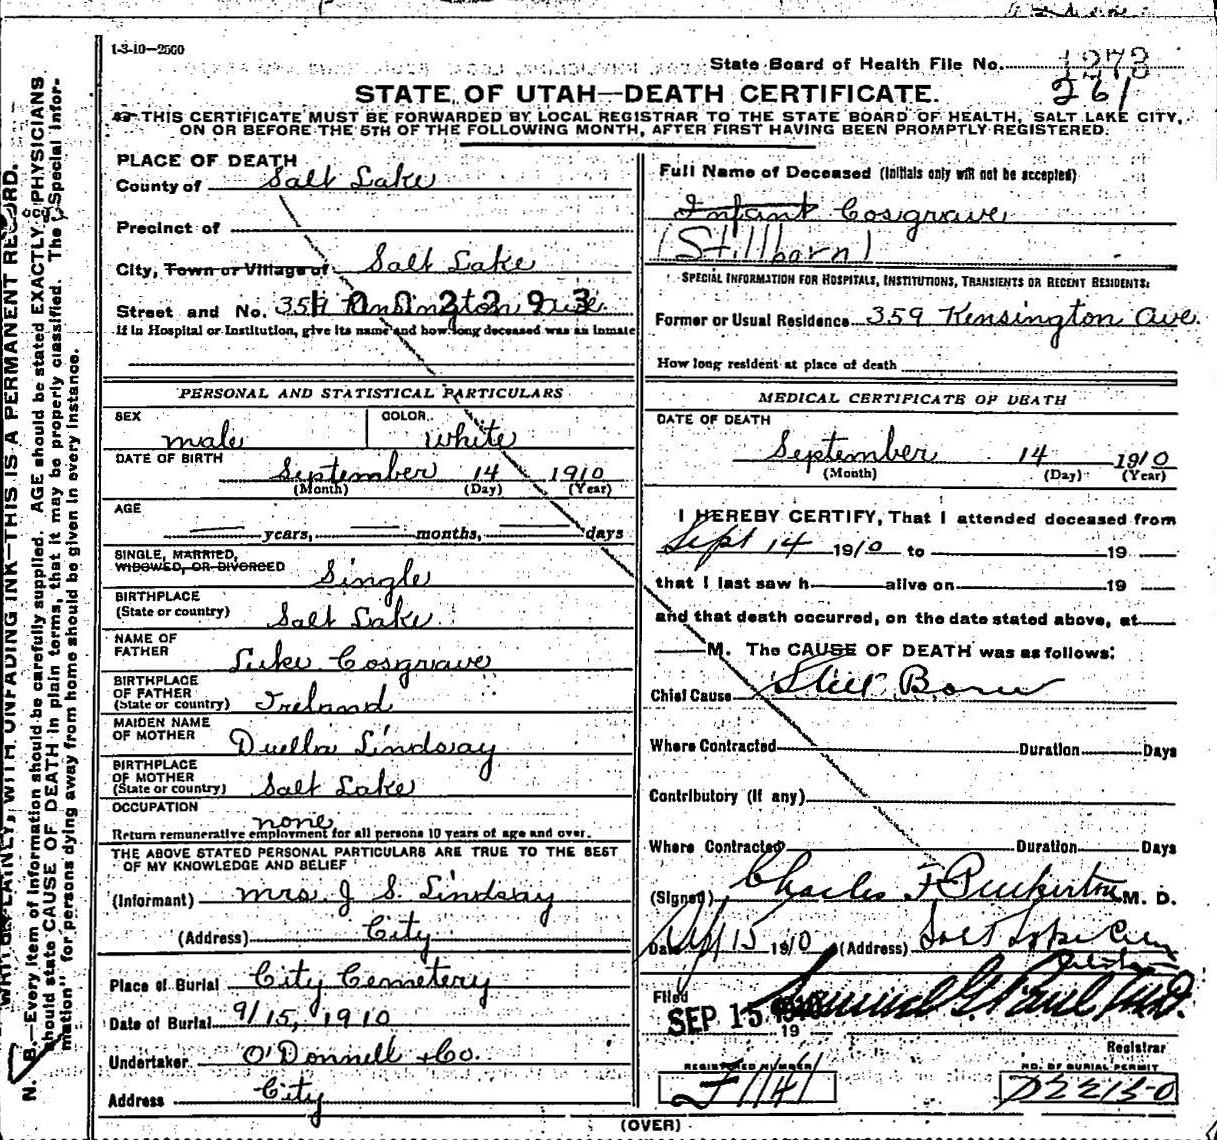 1-3-10—2500
State Board of Health File No. 1273
261
STATE OF UTAH—DEATH CERTIFICATE.
THIS CERTIFICATE MUST BE FORWARDED BY LOCAL REGISTRAR TO THE STATE BOARD OF HEALTH, SALT LAKE CITY,
ON OR BEFORE THE 5TH OF THE FOLLOWING MONTH, AFTER FIRST HAVING BEEN PROMPTLY REGISTERED.
PLACE OF DEATH
County of Salt Lake
Precinct of
City, Town or Village of Salt Lake
Street and No. 359 Kensington Ave.
If in Hospital or Institution, give its name and how long deceased was an inmate
PERSONAL AND STATISTICAL PARTICULARS
SEX male COLOR white
DATE OF BIRTH
September 14 1910
(Month) (Day) (Year)
AGE
years, months, days
SINGLE, MARRIED,
WIDOWED, OR DIVORCED Single
BIRTHPLACE
(State or country) Salt Lake
NAME OF
FATHER Luke Cosgrave
BIRTHPLACE
OF FATHER
(State or country) Ireland
MAIDEN NAME
OF MOTHER Duella Lindsay
BIRTHPLACE
OF MOTHER
(State or country) Salt Lake
OCCUPATION
none
Return remunerative employment for all persons 10 years of age and over.
THE ABOVE STATED PERSONAL PARTICULARS ARE TRUE TO THE BEST
OF MY KNOWLEDGE AND BELIEF
(Informant) Mrs. J. S. Lindsay
(Address) City
Place of Burial City Cemetery
Date of Burial 9/15, 1910
Undertaker O'Donnell & Co.
Address City
Full Name of Deceased (Initials only will not be accepted)
Infant Cosgrave
(Stillborn)
SPECIAL INFORMATION FOR HOSPITALS, INSTITUTIONS, TRANSIENTS OR RECENT RESIDENTS:
Former or Usual Residence 359 Kensington Ave.
How long resident at place of death
MEDICAL CERTIFICATE OF DEATH
DATE OF DEATH
September 14 1910
(Month) (Day) (Year)
I HEREBY CERTIFY, That I attended deceased from
Sept 14 1910 to 19
that I last saw h alive on 19
and that death occurred, on the date stated above, at
M. The CAUSE OF DEATH was as follows:
Chief Cause Still Born
Where Contracted Duration Days
Contributory (if any)
Where Contracted Duration Days
(Signed) Charles F Pinkerton M. D.
Date Sept 15 1910 (Address) Salt Lake City
Filed
SEP 15 1910
19
Samuel G. Paul M.D.
Registrar
REGISTERED NUMBER
F1141
NO. OF BURIAL PERMIT
(OVER)
WRITE PLAINLY, WITH UNFADING INK—THIS IS A PERMANENT RECORD.
N. B.—Every item of information should be carefully supplied. AGE should be stated EXACTLY. PHYSICIANS
should state CAUSE OF DEATH in plain terms, that it may be properly classified. The "Special Infor-
mation" for persons dying away from home should be given in every instance.